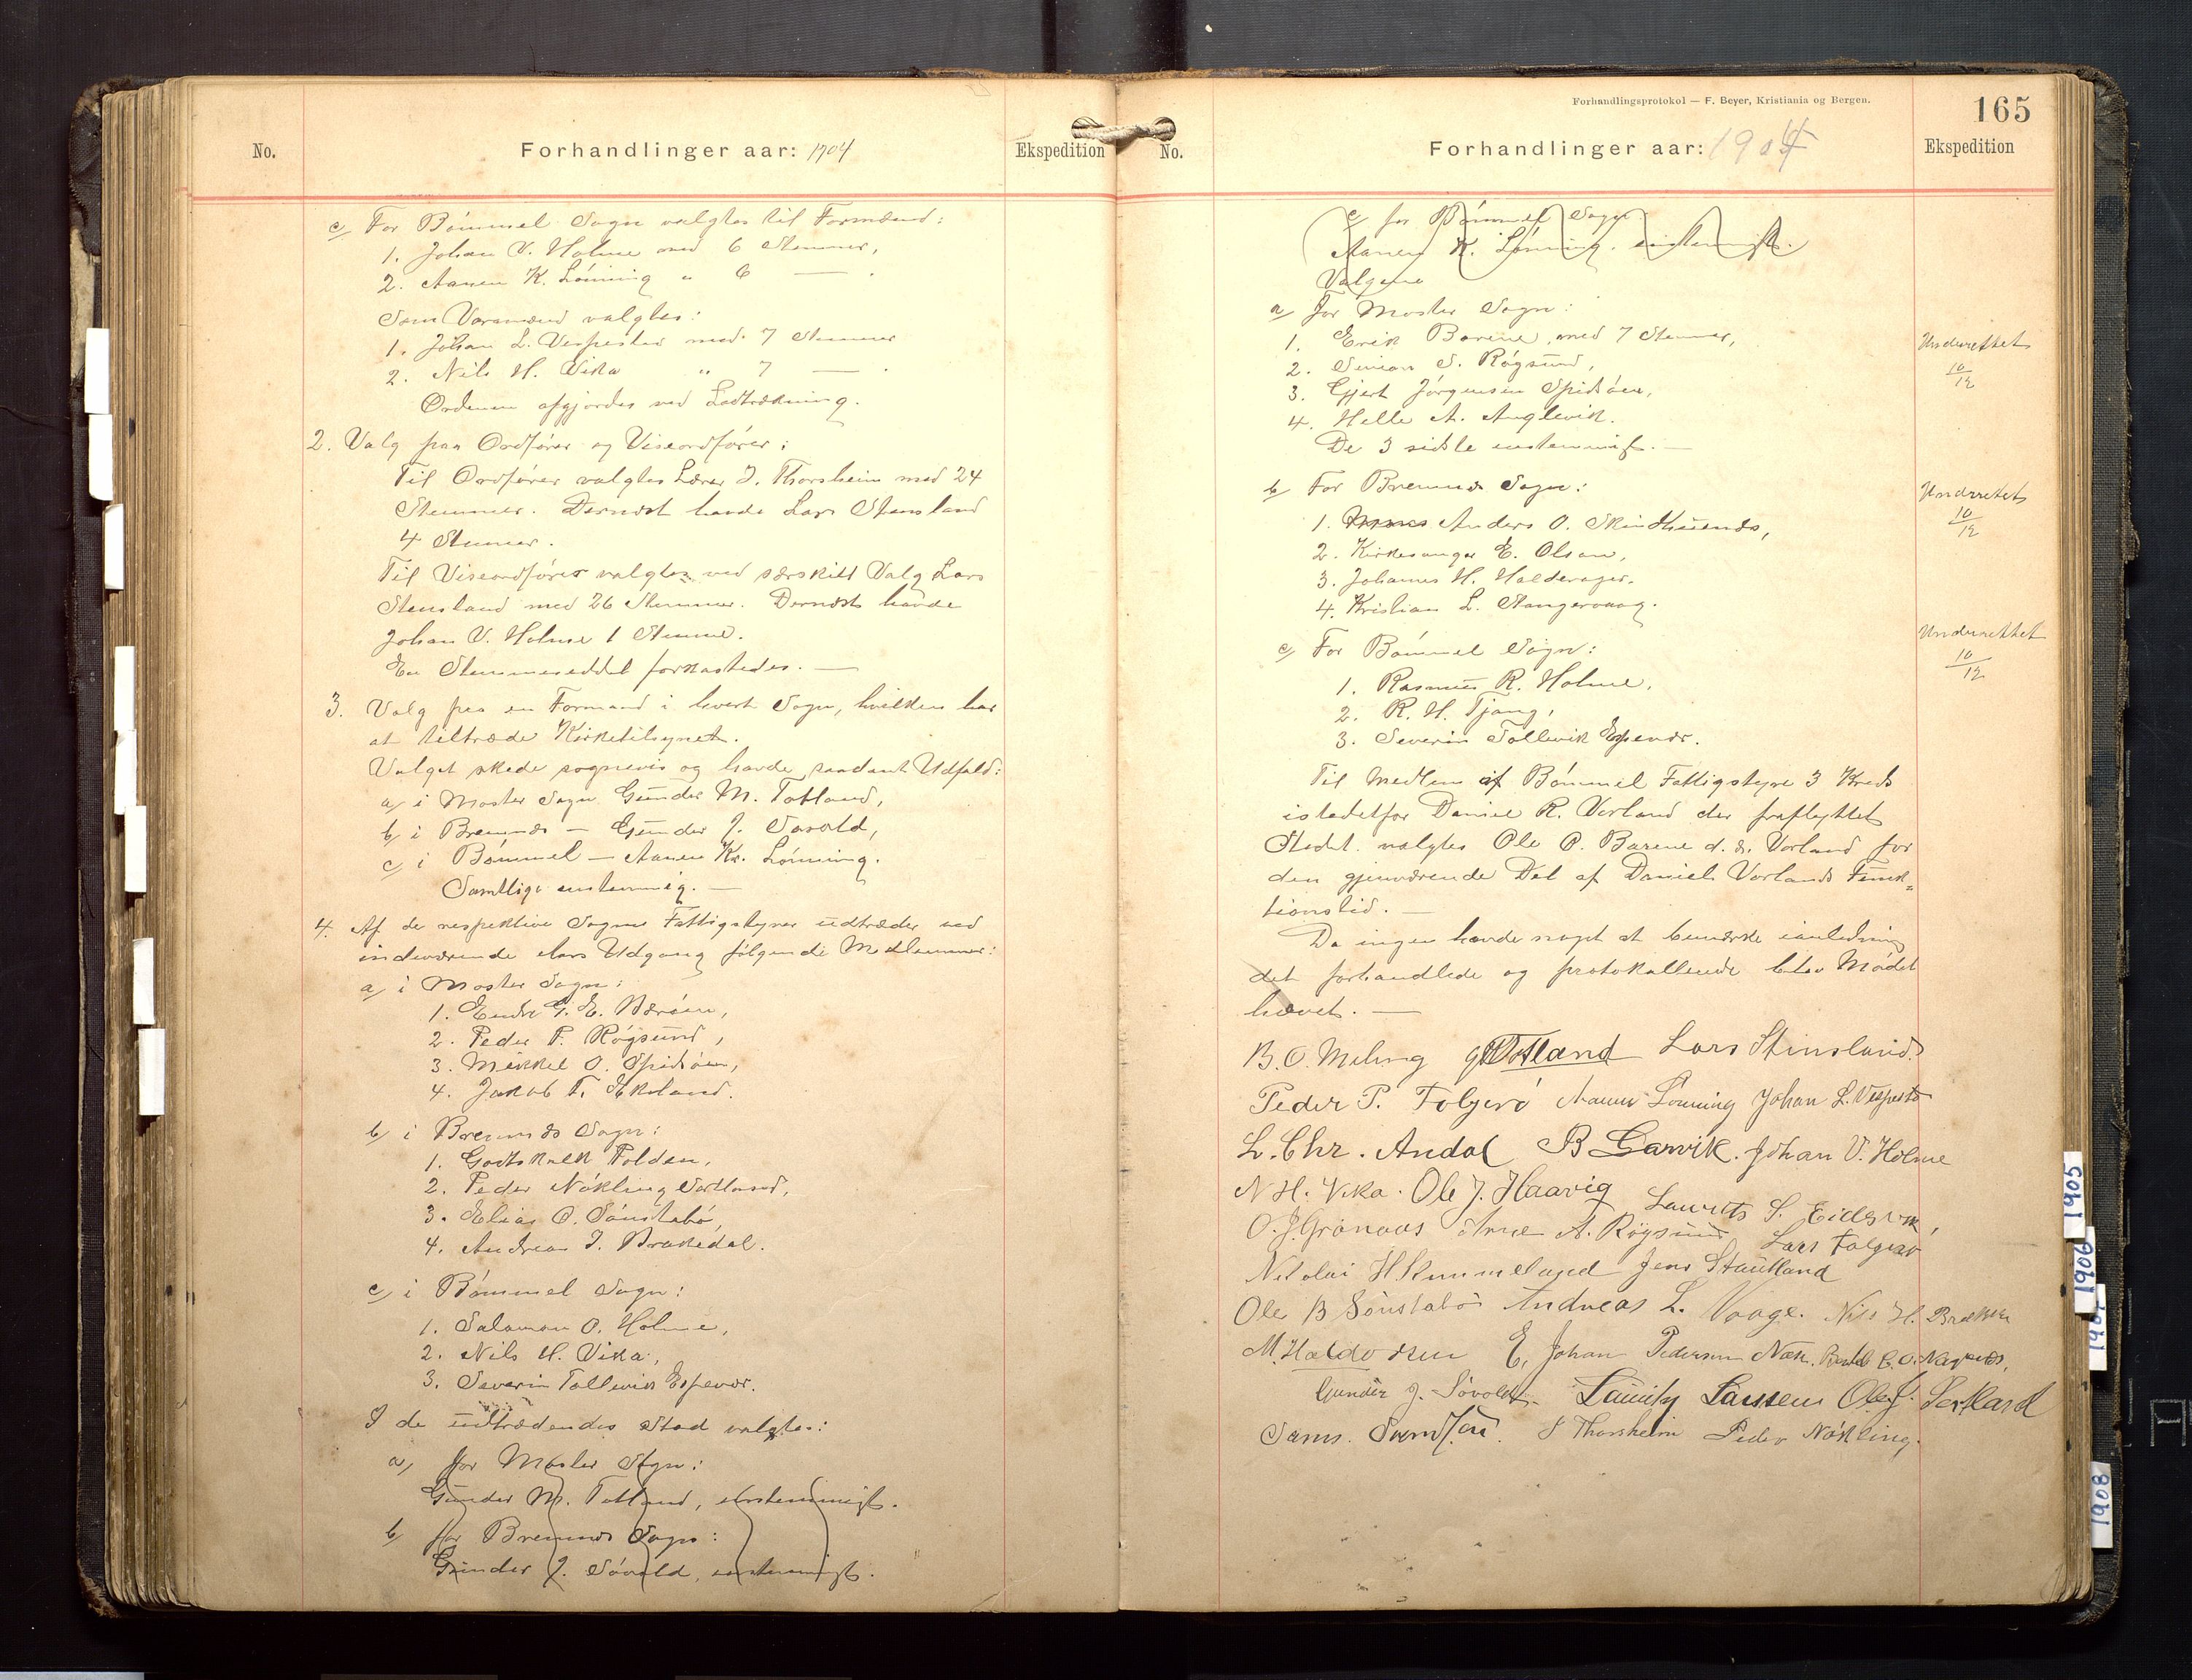 No.
Forhandlinger aar: 1904
Ekspedition
c/ For Bömmel Sogn valgtes til Formænd:
1. Johan V. Holme med 6 Stemmer,
2. Aanen K. Lönning " 6 — .
Som Varamænd valgtes:
1. Johan L. Vespestad med 7 Stemmer
2. Nils H. Vika " 7 — .
Ordenen afgjordes ved Lodtrækning.
2. Valg paa Ordförer og Viseordförer:
Til Ordförer valgtes Lærer J. Thorsheim med 24
Stemmer. Dernæst havde Lars Stensland
4 Stemmer.
Til Viseordförer valgtes ved særskilt Valg Lars
Stensland med 26 Stemmer. Dernæst havde
Johan V. Holme 1 Stemme.
En Stemmeseddel forkastedes. —
3. Valg paa en Formand i hvert Sogn, hvilken har
at tiltræde Kirketilsynet.
Valget skede sognevis og havde saadant Udfald:
a/ i Moster Sogn Gunder M. Totland,
b/ i Bremnæs — Gunder J. Sövold,
c/ i Bömmel — Aanen Kr. Lönning.
Samtlige enstemmig. —
4. Af de respektive Sognes Fattigstyrer udtræder ved
indeværende Aars Udgang fölgende Medlemmer:
a/ i Moster Sogn:
1. Endre G. E. Næröen,
2. Peder P. Röysund,
3. Mikkel O. Spidsöen,
4. Jakob T. Ekeland.
b/ i Bremnæs Sogn:
1. Godtskalk Folden,
2. Peder Nökling Sortland,
3. Elias O. Sönstabö,
4. Andreas J. Brakedal.
c/ i Bömmel Sogn:
1. Salamon O. Holme,
2. Nils H. Vika,
3. Severin Tollevik Espevær.
I de udtrædendes Sted valgtes:
a/ for Moster Sogn:
Gunder M. Totland, enstemmigt.
b/ for Bremnæs Sogn:
Gunder J. Sövold, enstemmigt.
Forhandlingsprotokol — F. Beyer, Kristiania og Bergen.
165
No.
Forhandlinger aar: 1904
Ekspedition
c/ for Bömmel Sogn
Aanen K. Lönning. enstemmigt.
Valgene
a/ for Moster Sogn:
1. Erik Barene, med 7 Stemmer,
2. Simon S. Röysund,
3. Gjert Jörgensen Spidsöen,
4. Helle A. Anglevik.
De 3 sidste enstemmigt. —
Underrettet
10/12
b/ For Bremnæs Sogn:
1. Anders O. Skimthuenæs,
2. Kirkesanger E. Olsen,
3. Johannes H. Halderager.
4. Kristian L. Stangervaag.
Underrettet
10/12
c/ For Bömmel Sogn:
1. Rasmus R. Holme,
2. R. H. Tjong,
3. Severin Tollevik Espevær.
Underrettet
10/12
Til Medlem af Bömmel Fattigstyre 3 Kreds
istedetfor Daniel R. Vorland der fraflyttet
Stedet. valgtes Ole O. Barene d. æ. Vorland for
den gjenværende Del af Daniel Vorlands Funk-
tionstid. —
Da ingen havde noget at bemærke ianledning
det forhandlede og protokollerede blev Mödet
hævet. —
B. O. Meling G M Totland Lars Stensland.
Peder P. Folgerö Aanen Lönning Johan L. Vespestad
L. Chr. Andal B Garvik. Johan V. Holme
N H. Vika. Ole J. Haavig Laurits S. Eidesvik,
O. J. Grönaas Arne A. Röysund Lars Folgerö
Nikolai H Hummeland Jens Stautland
Ole B Sönstabö Andreas L. Vaage. Nils H. Brekken
M. Haldorsen E. Johan Pedersen Næse. O. Næpenes,
Gunder J. Sövold. Lauritz Larssen Ole J. Sortland
Sams. Svendsen. J Thorsheim Peder Nökling.
1905
1906
1907
1908
A